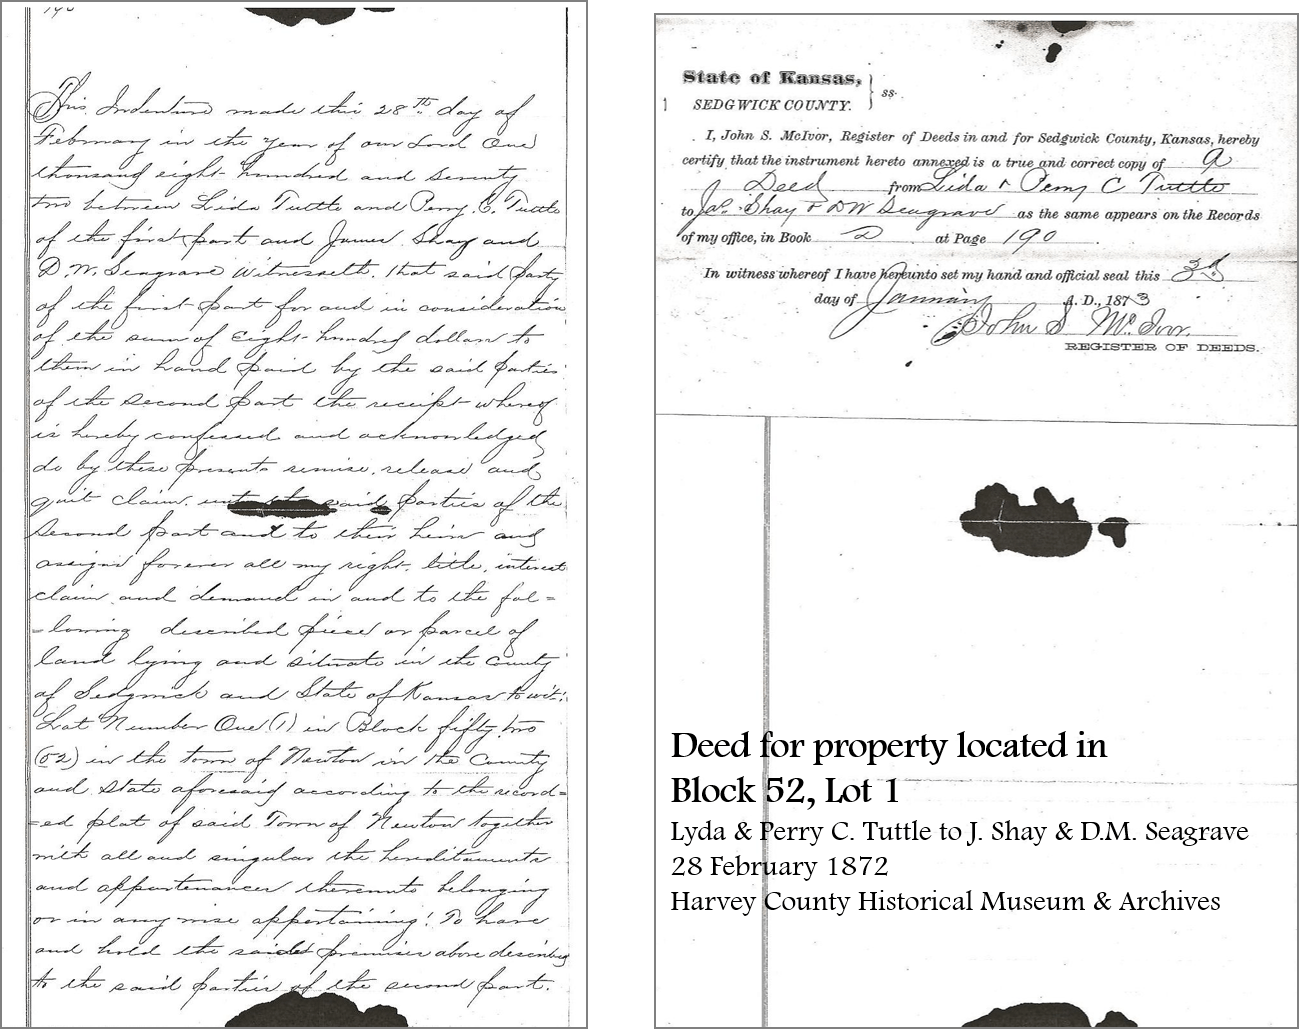 190
This Indenture made this 28th day of
February in the Year of our Lord One
thousand eight hundred and seventy
two between Lida Tuttle and Perry C. Tuttle
of the first part and James Shay and
D. W. Seagrave Witnesseth. that said party
of the first part for and in consideration
of the sum of Eight hundred dollars to
them in hand paid by the said parties
of the second part the receipt whereof
is hereby confessed and acknowledged
do by these presents remise, release and
quit claim. unto the said parties of the
second part and to their heirs and
assigns forever all my right, title, interest
claim and demand in and to the fol=
=lowing described piece or parcel of
land lying and situate in the County
of Sedgwick and State of Kansas to wit:
Lot Number One (1) in Block fifty two
(52) in the town of Newton in the County
and State aforesaid according to the record=
=ed plat of said Town of Newton together
with all and singular the hereditaments
and appurtenances thereunto belonging
or in any wise appertaining: To have
and hold the premises above described
to the said parties of the second part.
State of Kansas, } ss.
SEDGWICK COUNTY.
I, John S. McIvor, Register of Deeds in and for Sedgwick County, Kansas, hereby
certify that the instrument hereto annexed is a true and correct copy of a
Deed from Lida & Perry C Tuttle
to Jas. Shay & DW Seagrave as the same appears on the Records
of my office, in Book D at Page 190
In witness whereof I have hereunto set my hand and official seal this 3d
day of January A. D., 1873
John S McIvor.
REGISTER OF DEEDS.
Deed for property located in
Block 52, Lot 1
Lyda & Perry C. Tuttle to J. Shay & D.M. Seagrave
28 February 1872
Harvey County Historical Museum & Archives